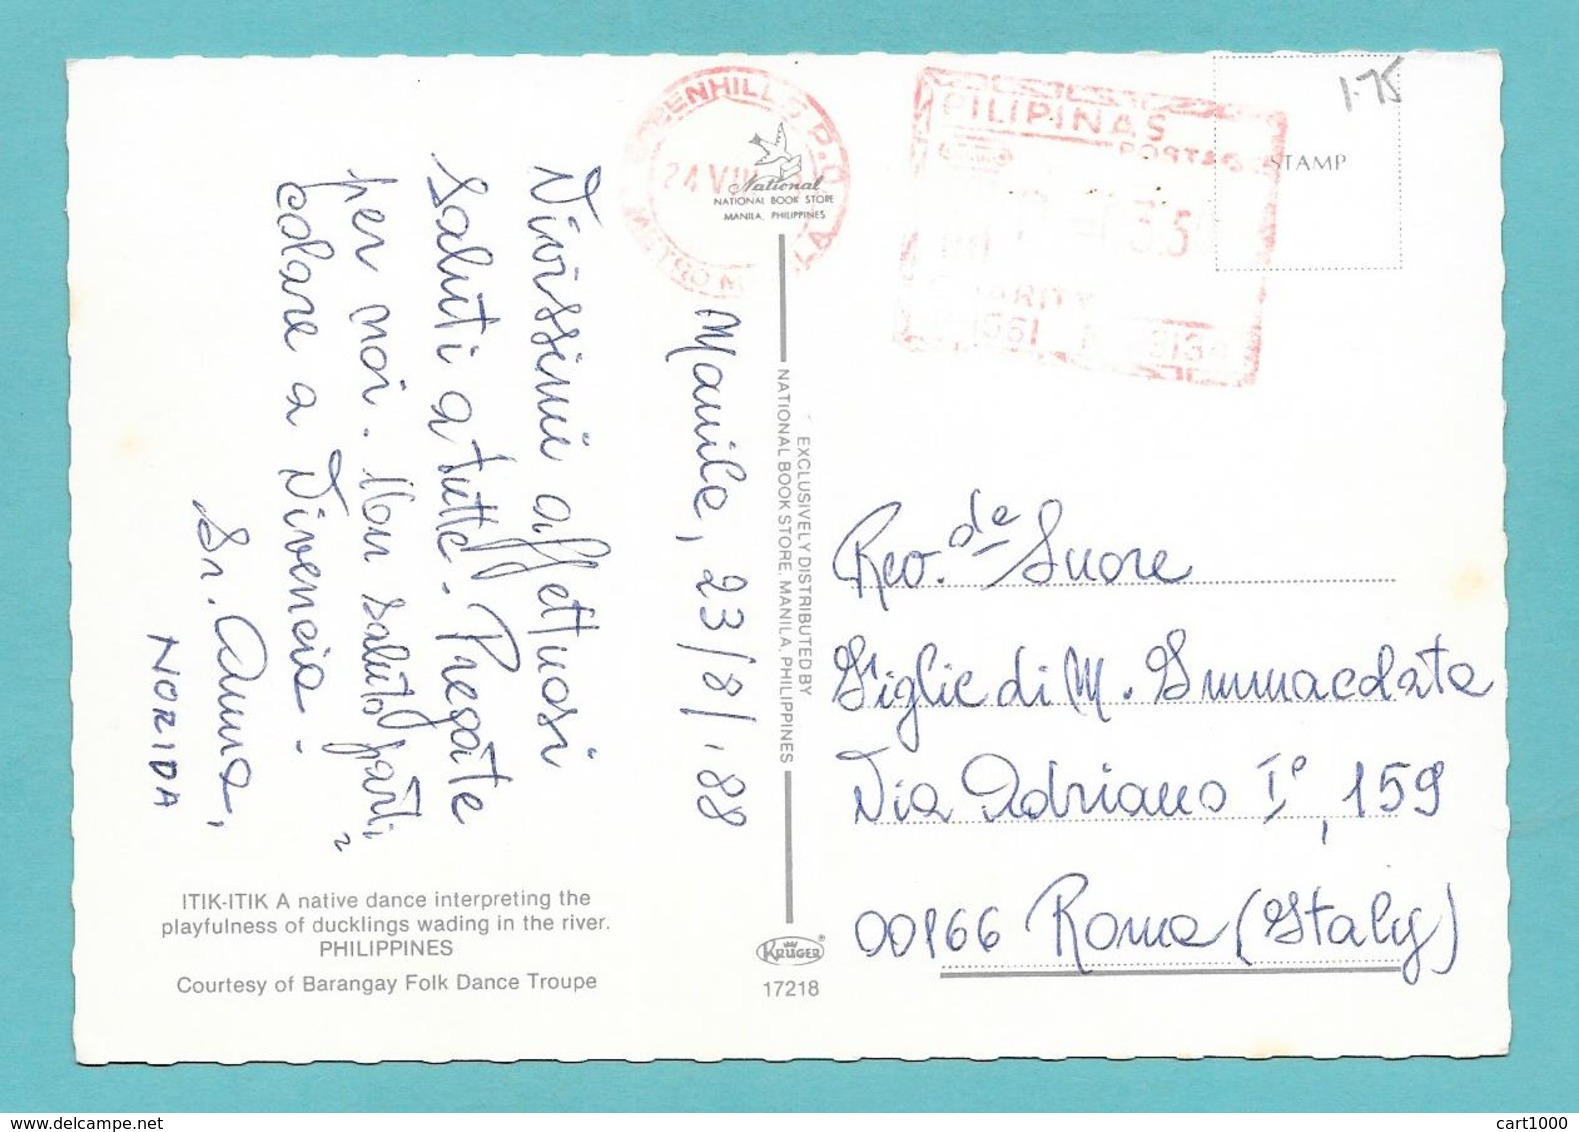 Manila, 23/8/'88
Vivissimi affettuosi
saluti a tutte. Pregate
per noi. Un saluto parti,
colare a Vivencia.
Sr. Anna,
NORIDA
ITIK-ITIK A native dance interpreting the
playfulness of ducklings wading in the river.
PHILIPPINES
Courtesy of Barangay Folk Dance Troupe
GREENHILLS P.O.
24 VIII
METRO MANILA
National
NATIONAL BOOK STORE
MANILA, PHILIPPINES
EXCLUSIVELY DISTRIBUTED BY
NATIONAL BOOK STORE, MANILA, PHILIPPINES
KRÜGER®
17218
PILIPINAS
POSTAGE
STAMP
1.75
Rev.de Suore
Figlie di M. Immacolata
Via Adriano I°, 159
00166 Roma (Italy)
www.delcampe.net
cart1000